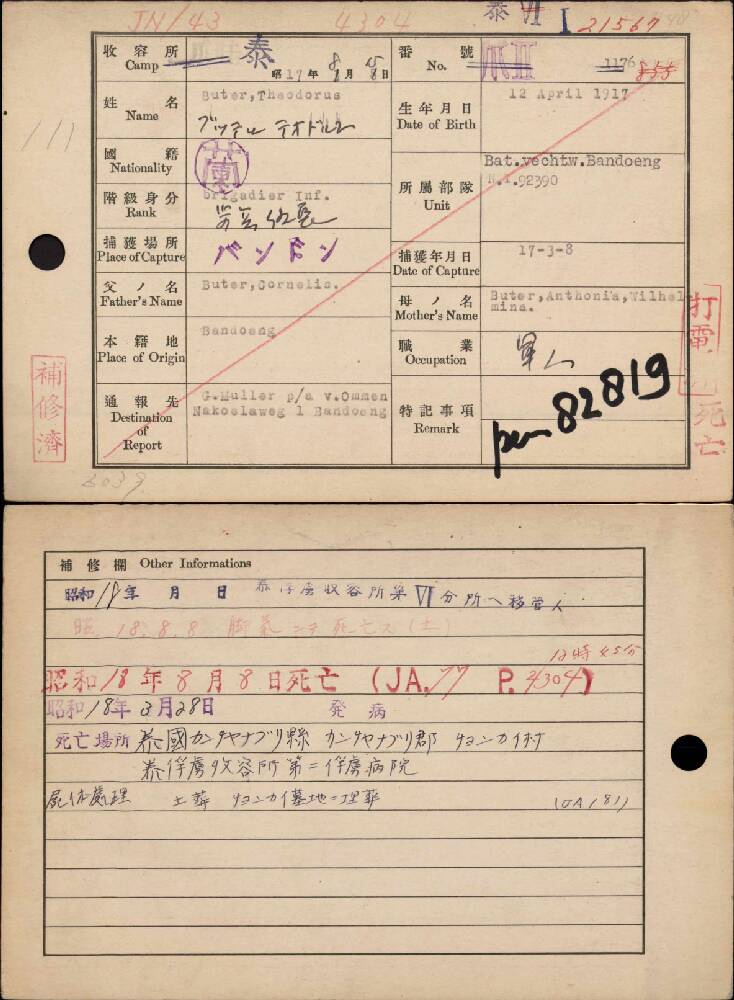 JN/43 4304 泰 VI I 21567
收容所 Camp 泰 昭17年8月15日
番號 No. 1176 855
姓名 Name Buter,Theodorus
ブッテル テオドルス
生年月日 Date of Birth 12 April 1917
111
國籍 Nationality 蘭
階級身分 Rank brigadier Inf.
所屬部隊 Unit Bat.vechtw.Bandoeng
N.I.92390
捕獲場所 Place of Capture バンドン
捕獲年月日 Date of Capture 17-3-8
父ノ名 Father's Name Buter,Cornelis.
母ノ名 Mother's Name Buter,Anthonia,Wilhel
mina.
本籍地 Place of Origin Bandoeng
職業 Occupation 軍人
通報先 Destination of Report G.Muller p/a v.Ommen
Nakoelaweg 1 Bandoeng
特記事項 Remark pen 82819
補修濟
打電
死亡
6039
補修欄 Other Informations
昭和18年 月 日 泰俘虜收容所第VI分所ヘ移管ス
昭 18.8.8 脚氣ニテ死亡ス(土)
12時45分
昭和18年8月8日死亡 (JA.77 P.4304)
昭和18年3月28日 発病
死亡場所 泰國カンチャナブリ縣 カンチャナブリ郡 チョンカイ村
泰俘虜收容所第二俘虜病院
屍体處理 土葬 チョンカイ墓地ニ埋葬 (JA181)